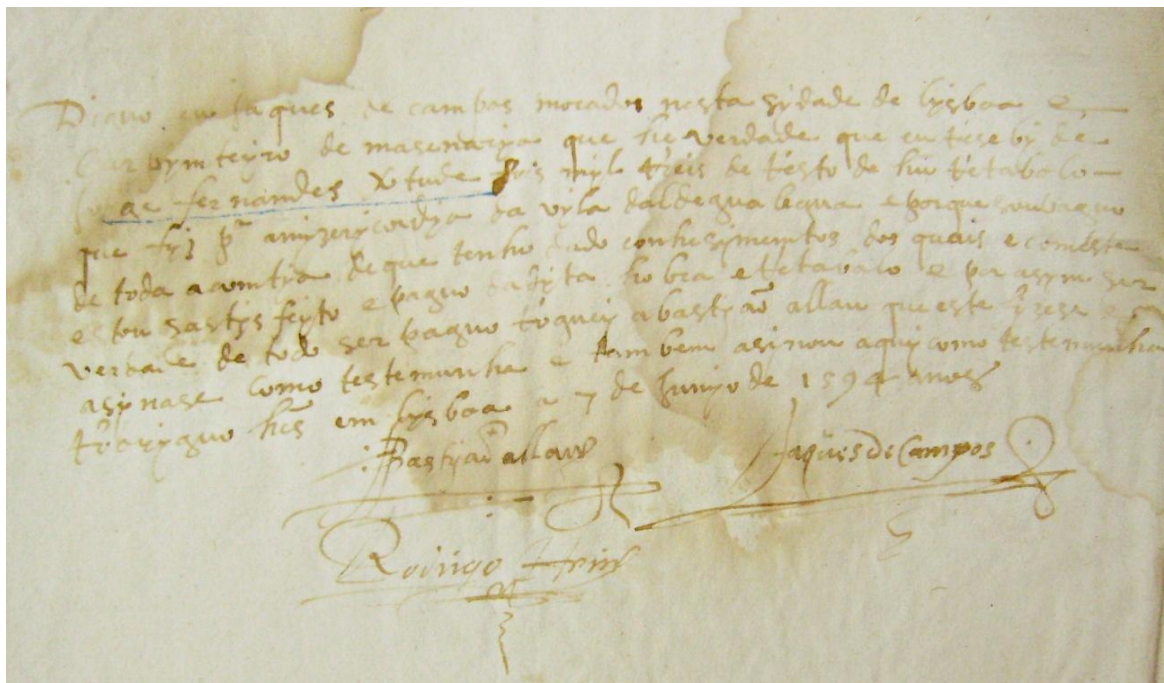 Diguo eu Jaques de cambos morador nesta sydade de lysboa e
carpymteyro de masenarya que he verdade que eu resebi de
fernamdes xtude myl reis de resto de hu retabolo
que fyz pª a myzerycordya da vyla daldegualegua e porque sou paguo
de toda a comtya de que tenho dado conhesymemtos dos quais e com este
estou satysfeyto e paguo da dyta hobra e retabolo e por asym ser
verdade de todo ser paguo roguey a bastyaõ allau que este fizese e
asynase como testemunha e tambem asinou aqui como testemunha
em lysboa a 7 de Junyo de 1594 anos
Bastyaõ allau Jaques de Campos
Rodrigo